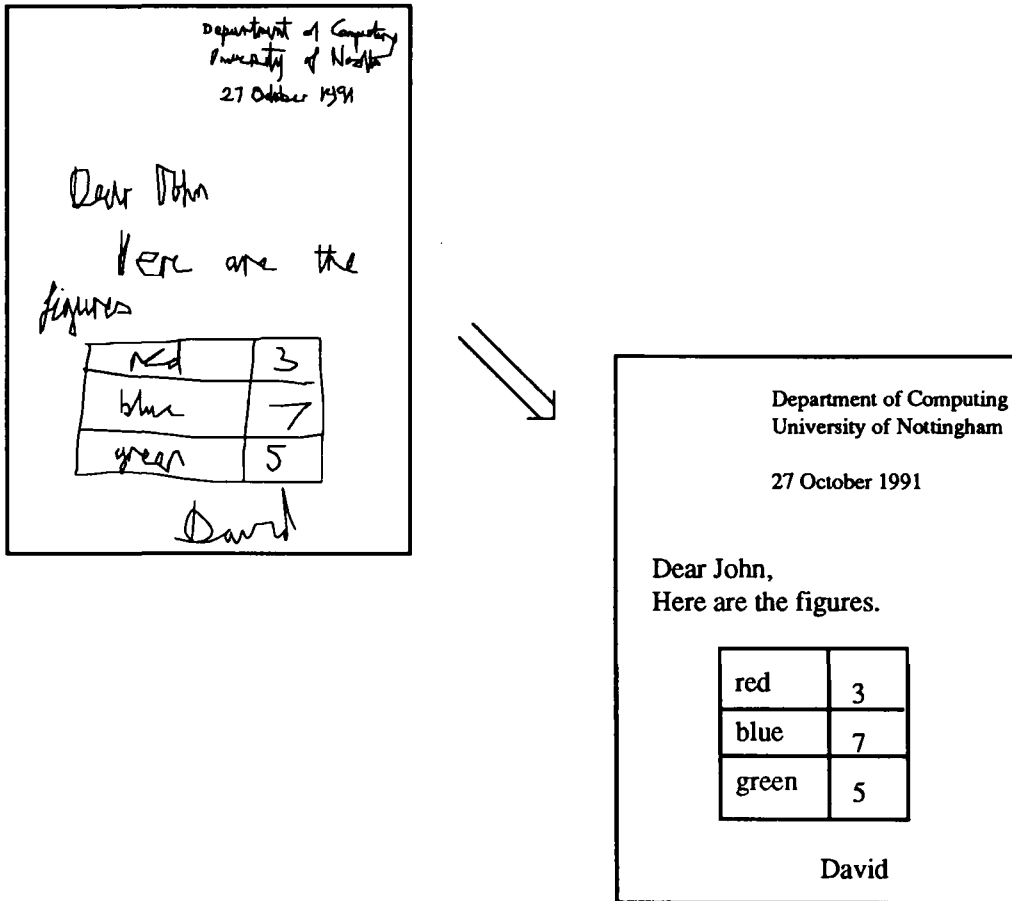 Department of Computing
University of Nottm
27 October 1991
Dear John
Here are the
figures
red 3
blue 7
green 5
David
Department of Computing
University of Nottingham
27 October 1991
Dear John,
Here are the figures.
red 3
blue 7
green 5
David